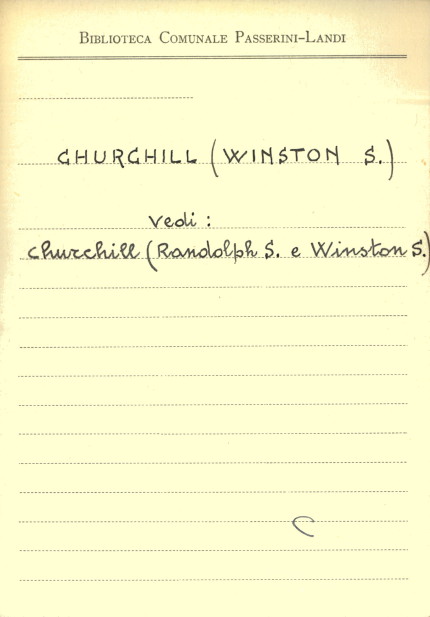 Biblioteca Comunale Passerini-Landi
CHURCHILL (WINSTON S.)
Vedi :
Churchill (Randolph S. e Winston S.)
C